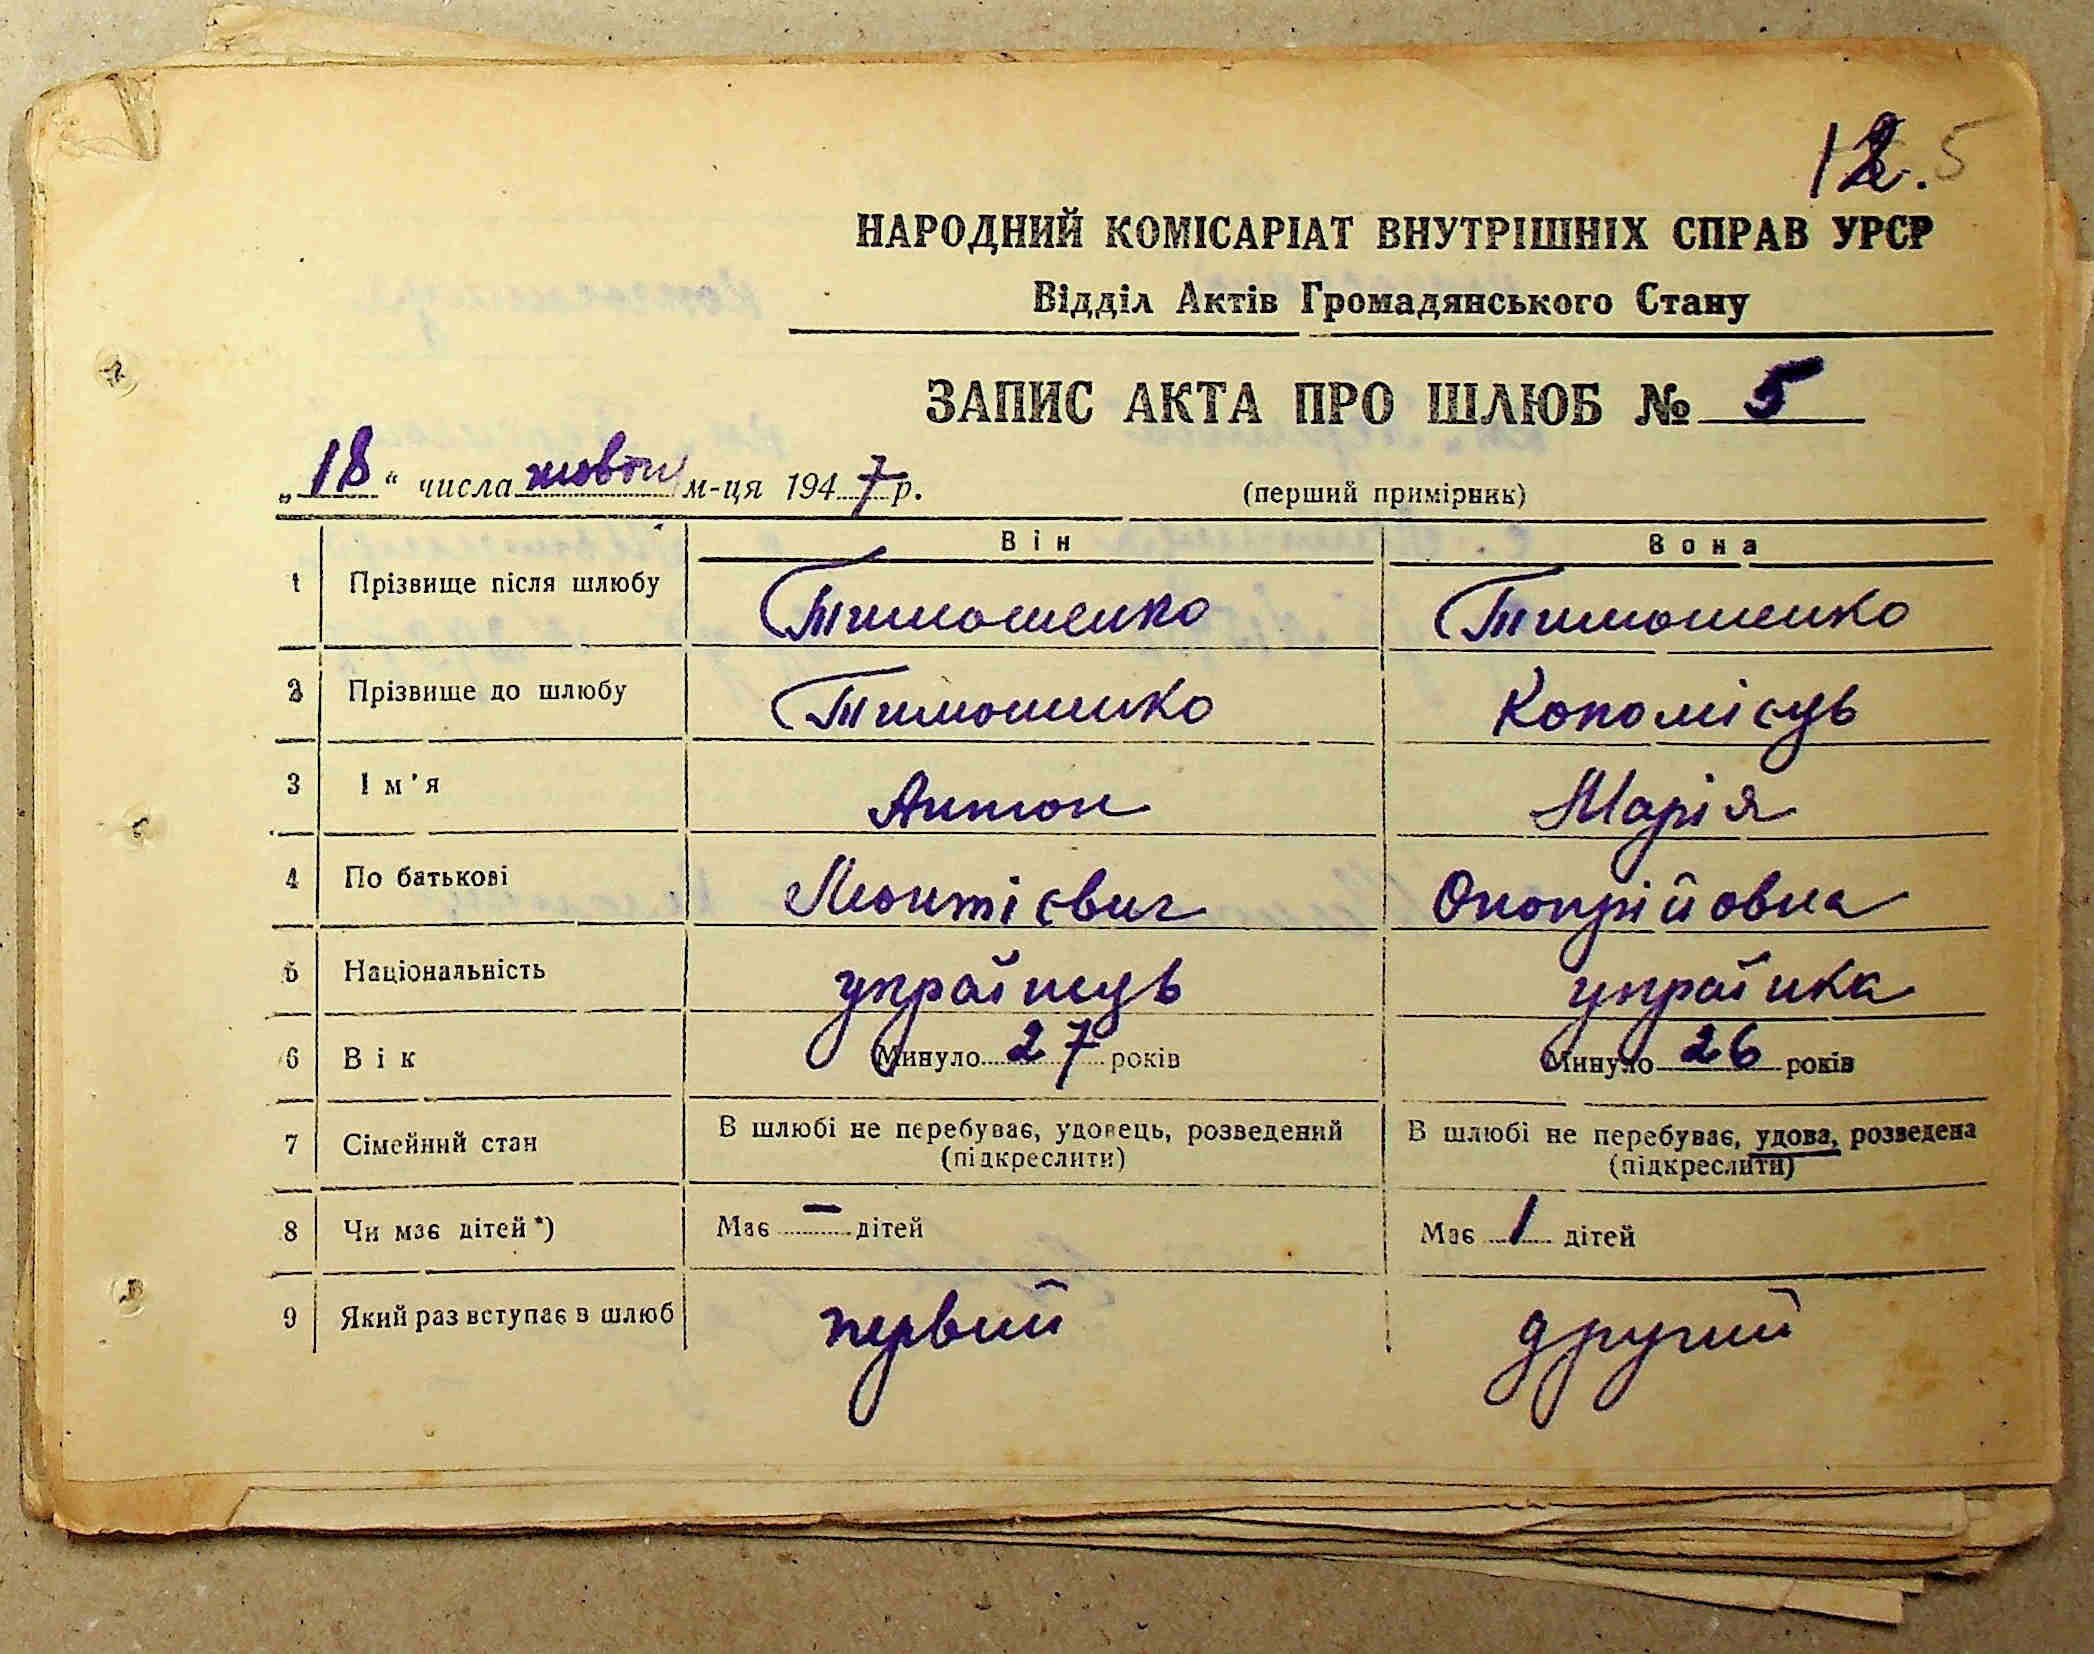 12. 5
НАРОДНИЙ КОМІСАРІАТ ВНУТРІШНІХ СПРАВ УРСР
Відділ Актів Громадянського Стану
ЗАПИС АКТА ПРО ШЛЮБ № 5
„18“ числа жовтн м-ця 1947 р.
(перший примірник)
Він Вона
1 Прізвище після шлюбу Тимошенко Тимошенко
2 Прізвище до шлюбу Тимошенко Коломієць
3 Ім'я Антон Марія
4 По батькові Леонтієвич Онопрійовна
5 Національність українець українка
6 Вік Минуло 27 років Минуло 26 років
7 Сімейний стан В шлюбі не перебуває, удовець, розведений В шлюбі не перебуває, удова, розведена
(підкреслити) (підкреслити)
8 Чи має дітей *) Має — дітей Має 1 дітей
9 Який раз вступає в шлюб первий другий